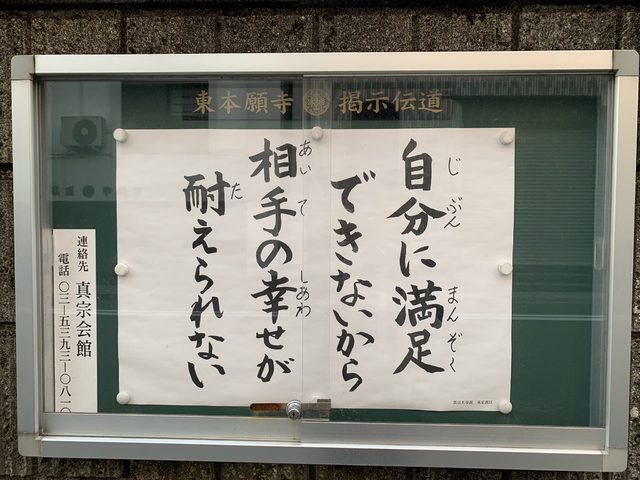 東本願寺 掲示伝道
自分に満足
じぶん まんぞく
できないから
相手の幸せが
あいて しあわ
耐えられない
た
連絡先 真宗会館
電話 〇三ー五三九三ー〇八一〇